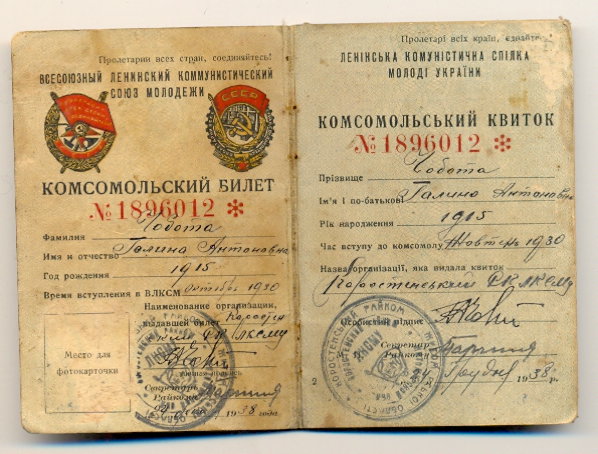 Пролетарии всех стран, соединяйтесь!
ВСЕСОЮЗНЫЙ ЛЕНИНСКИЙ КОММУНИСТИЧЕСКИЙ
СОЮЗ МОЛОДЕЖИ
СССР
КОМСОМОЛЬСКИЙ БИЛЕТ
№ 1896012 *
Фамилия Чобота
Имя и отчество Галина Антоновна
Год рождения 1915
Время вступления в ВЛКСМ октябрь 1930
Наименование организации,
выдавшей билет
РК ЛКСМУ
Место для
фотокарточки
личная подпись
Секретарь
Райкома
1938 года
Пролетарі всіх країн, єднайте
ЛЕНІНСЬКА КОМУНІСТИЧНА СПІЛКА
МОЛОДІ УКРАЇНИ
КОМСОМОЛЬСЬКИЙ КВИТОК
№ 1896012 *
Прізвище Чобота
Ім'я і по-батькові Галина Антонівна
Рік народження 1915
Час вступу до комсомолу Жовтень 1930
Назва організації, яка видала квиток
Коростенський РК ЛКСМУ
Особистий підпис
Секретар
Райкому
2
24 Грудня 1938 р.
КОРОСТЕНСЬКИЙ РАЙКОМ